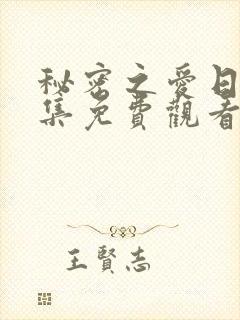 秘密之愛日
集免費觀看
王賢志